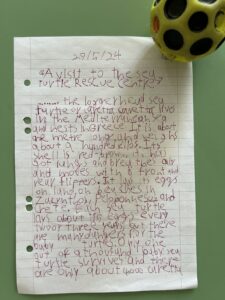 29/5/24
"A visit to the sea
turtle Rescue Centre"
........ the loggerhead sea
turtle or caretta caretta lives
in the Mediterranean
and nests in Greece. It is about
one metre long and weighs
about 9 hundred kilos. Its
shell is red-brown. It has
got lungs and breathes air
and moves with 2 front and
rear flippers. It lays eggs
on land, on beaches in
Zakynthos, Peloponnese and
Crete. It lays
about 120 eggs every
two or three years but there
are many dangers for the
baby turtles. Only one
out of a thousand baby sea
turtle survives and there
are only about caretta